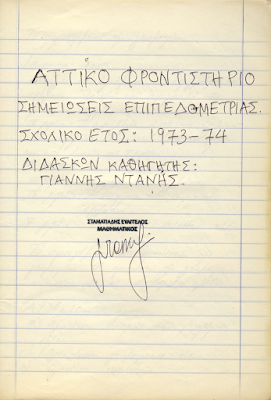 ΑΤΤΙΚΟ ΦΡΟΝΤΙΣΤΗΡΙΟ
ΣΗΜΕΙΩΣΕΙΣ ΕΠΙΠΕΔΟΜΕΤΡΙΑΣ.
ΣΧΟΛΙΚΟ ΕΤΟΣ: 1973-74
ΔΙΔΑΣΚΩΝ ΚΑΘΗΓΗΤΗΣ:
ΓΙΑΝΝΗΣ ΝΤΑΝΗΣ.
ΣΤΑΜΑΤΙΑΔΗΣ ΕΥΑΓΓΕΛΟΣ
ΜΑΘΗΜΑΤΙΚΟΣ